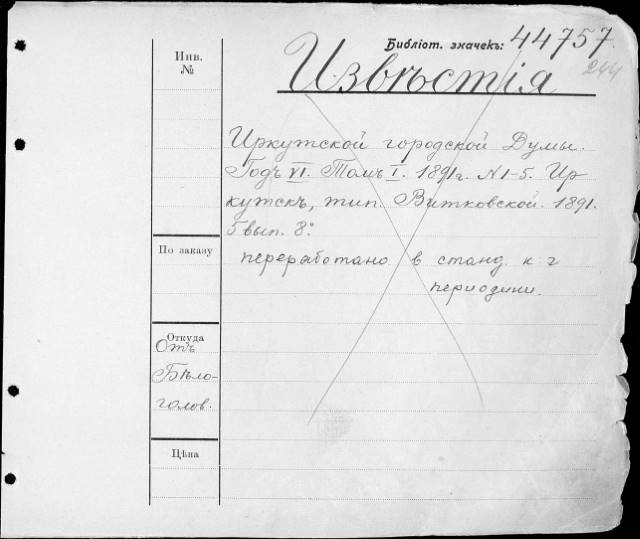 Библіот. значекъ: 44757.
244
Инв.
№
Извѣстія
Иркутской городской Думы.
Годъ VI. Томъ I. 1891г. №1-5. Ир
кутскъ, тип. Витковской. 1891.
5 вып. 8º
По заказу
переработано в станд. к-г
периодики.
Откуда
Отъ
Бѣло-
голов.
Цѣна